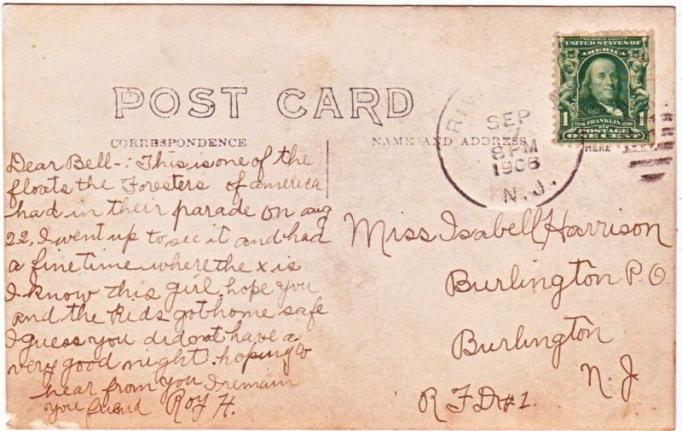 POST CARD
CORRESPONDENCE
NAME AND ADDRESS
HERE
UNITED STATES OF
AMERICA
1 FRANKLIN 1
POSTAGE
ONE CENT
RIV
SEP
8 PM
1906
N.J.
Dear Bell-: This is one of the
floats the Foresters of america
had in their parade on aug
22. I went up to see it and had
a fine time where the x is
I know this girl, hope you
and the kids got home safe
I guess you did not have a
very good night. hoping to
hear from you I remain
your friend Roy H.
Miss Isabell Harrison
Burlington P.O.
Burlington
N.J
R F D #1.